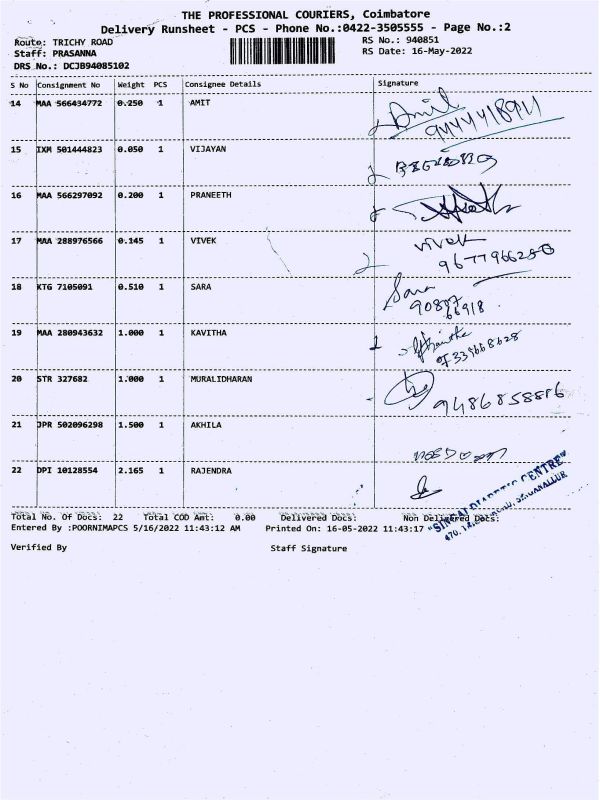 THE PROFESSIONAL COURIERS, Coimbatore
Delivery Runsheet - PCS - Phone No.:0422-3505555 - Page No.:2
Route: TRICHY ROAD
RS No.: 940851
Staff: PRASANNA
RS Date: 16-May-2022
DRS No.: DCJB94085102
S No Consignment No Weight PCS Consignee Details Signature
14 MAA 566434772 0.250 1 AMIT Amit
9444418911
15 IXM 501444823 0.050 1 VIJAYAN
16 MAA 566297092 0.200 1 PRANEETH
17 MAA 288976566 0.145 1 VIVEK vivek
9677966280
18 KTG 7105091 0.510 1 SARA Sara
90807
66918
19 MAA 280943632 1.000 1 KAVITHA
20 STR 327682 1.000 1 MURALIDHARAN
9486858816
21 JPR 502096298 1.500 1 AKHILA
22 DPI 10128554 2.165 1 RAJENDRA
CENTRE"
Total No. Of Docs: 22 Total COD Amt: 0.00 Delivered Docs: Non Delivered Docs:
Entered By :POORNIMAPCS 5/16/2022 11:43:12 AM Printed On: 16-05-2022 11:43:17
Verified By Staff Signature